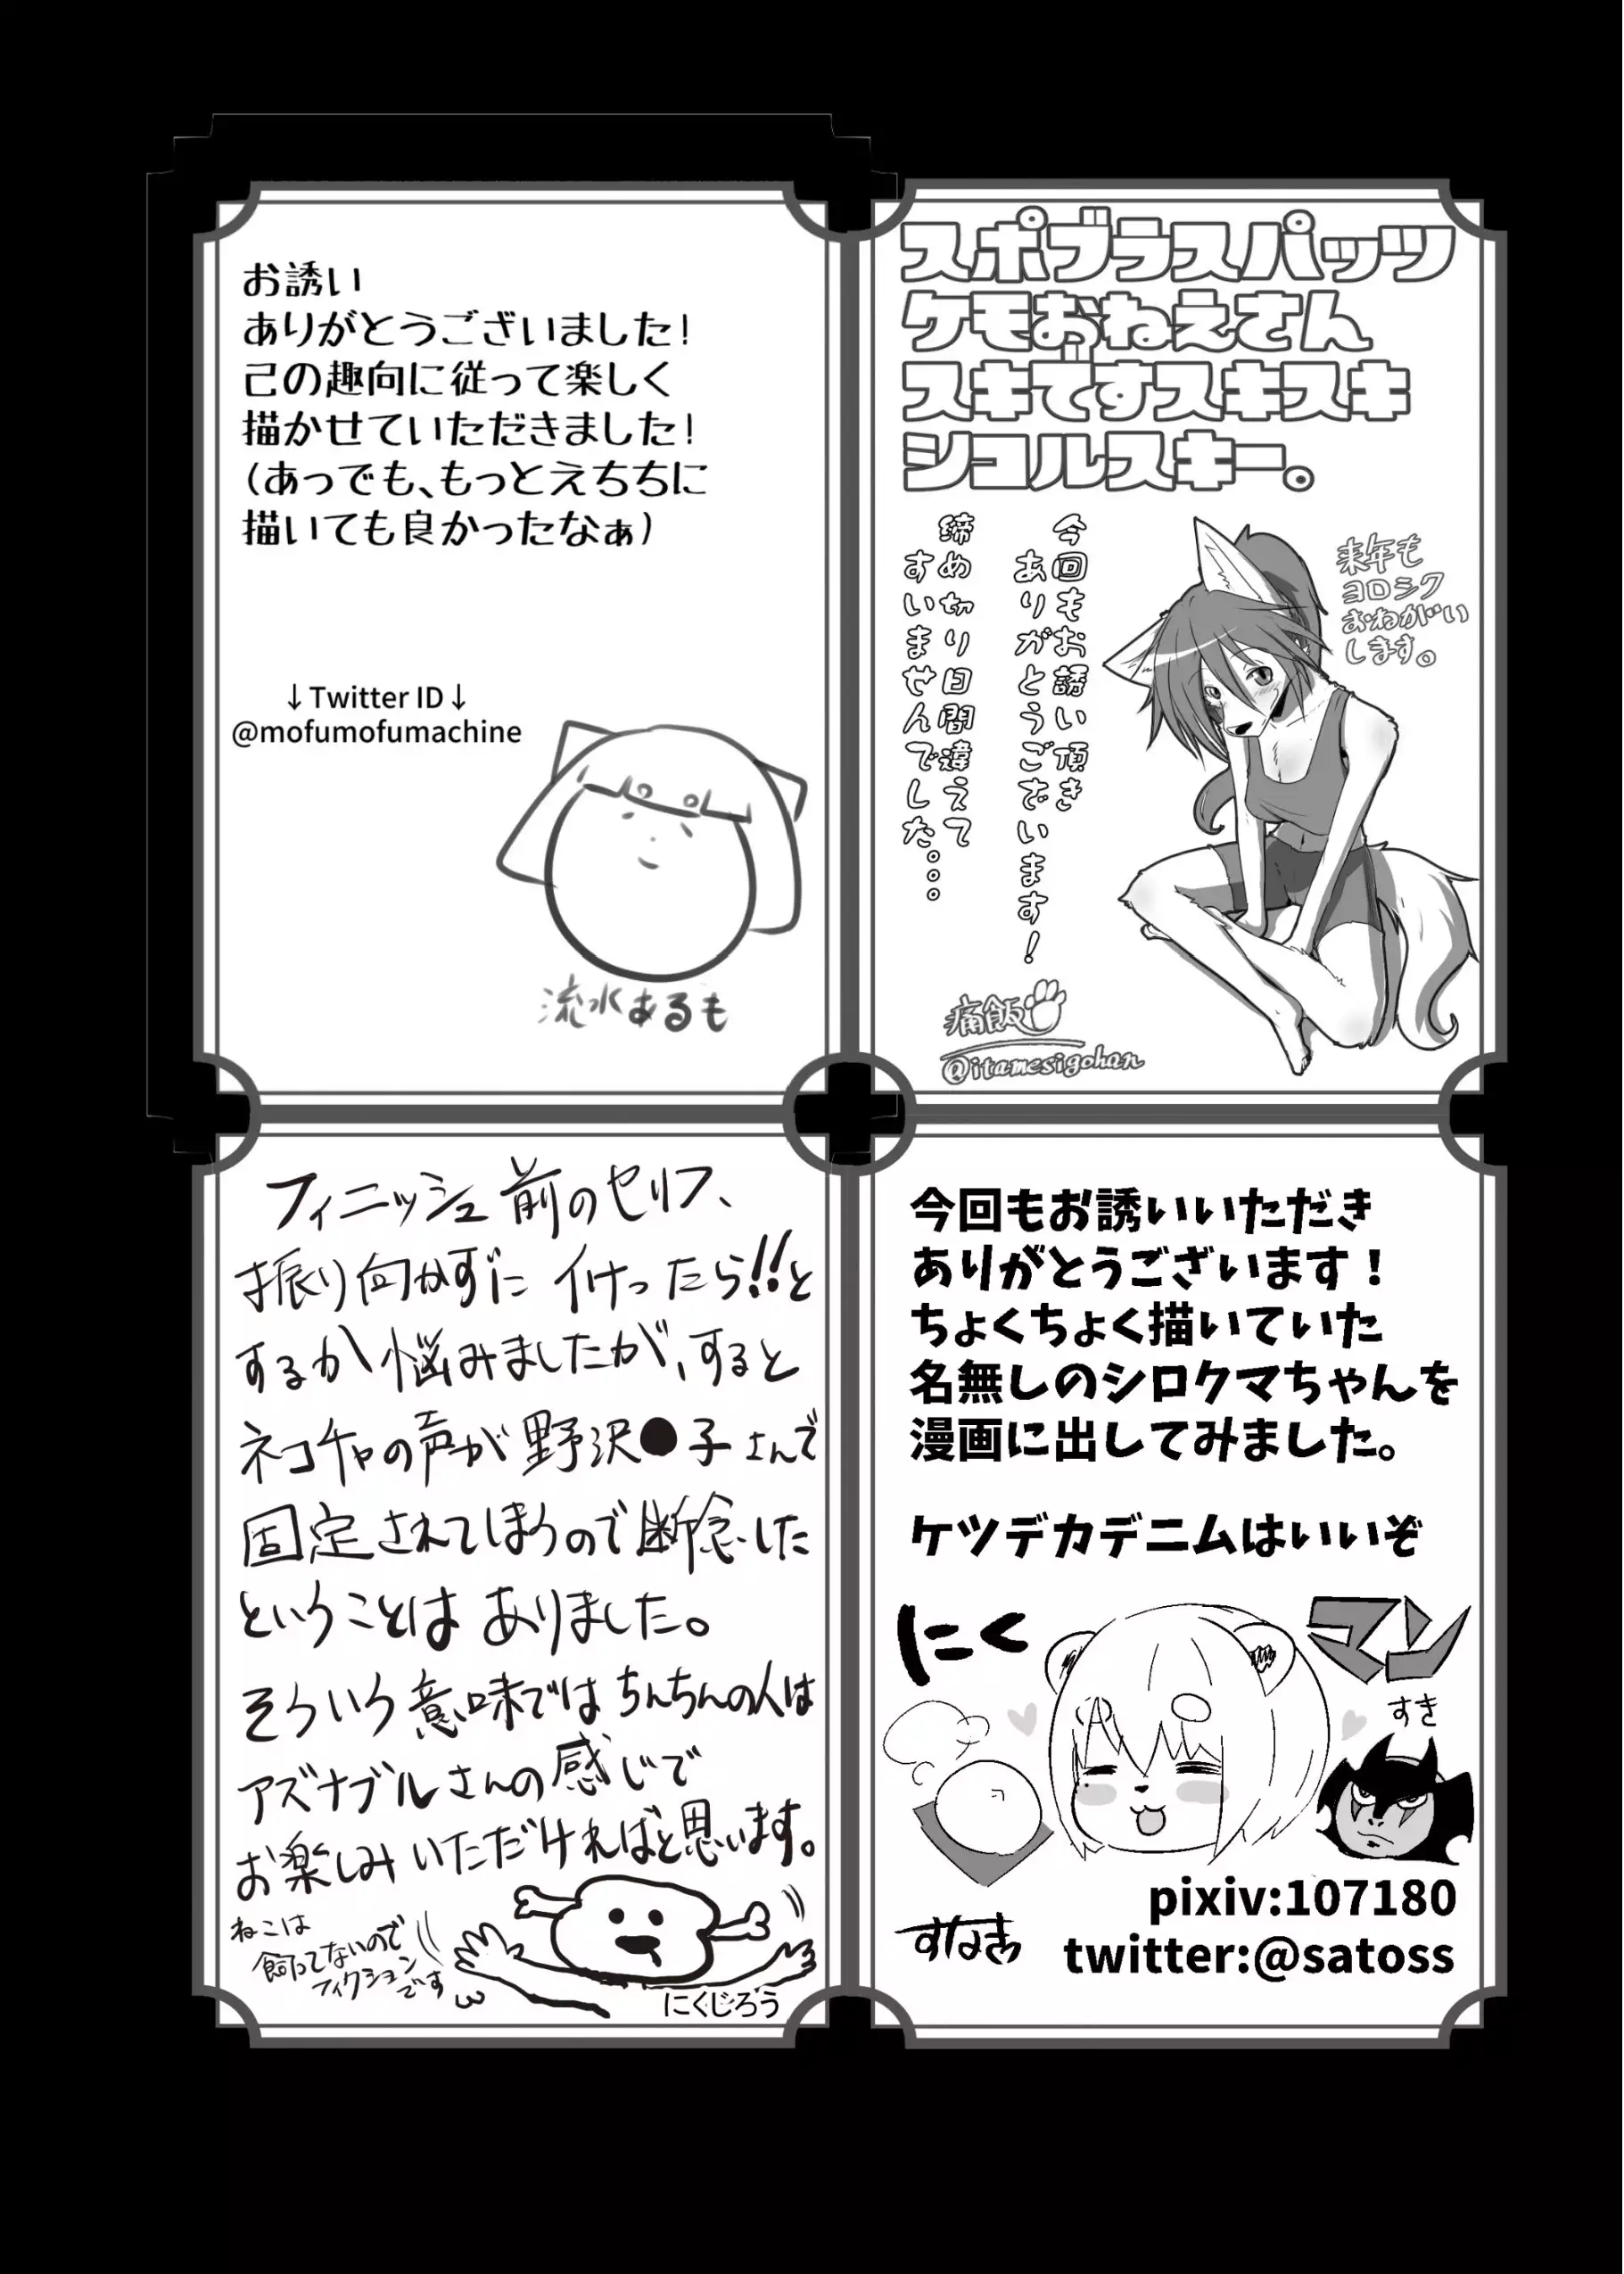 スポブラスパッツ
ケモおねえさん
スキですスキスキ
シコルスキー。
今回もお誘い頂き
ありがとうございます!
締め切り日間違えて
すいませんでした…。。。
来年も
ヨロシク
おねがい
します。
痛飯
@itamesigohan
お誘い
ありがとうございました!
己の趣向に従って楽しく
描かせていただきました!
(あっでも、もっとえちちに
描いても良かったなぁ)
↓Twitter ID↓
@mofumofumachine
流水あるも
今回もお誘いいただき
ありがとうございます!
ちょくちょく描いていた
名無しのシロクマちゃんを
漫画に出してみました。
ケツデカデニムはいいぞ
にく
マン
すき
すなきち
pixiv:107180
twitter:@satoss
フィニッシュ前のセリフ、
振り向かずに イけったら!!と
するか悩みましたが、すると
ネコチャの声が野沢●子さんで
固定されてしまうので断念した
ということは ありました。
そういう意味では ちんちんの人は
アズナブルさんの感じで
お楽しみいただければと思います。
ねこは
飼ってないので
フィクション
です
にくじろう